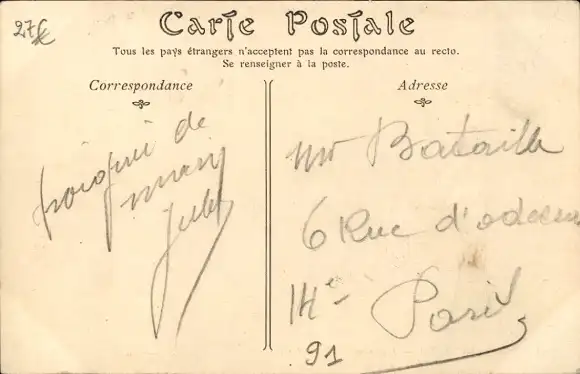 27€
Carte Postale
Tous les pays étrangers n'acceptent pas la correspondance au recto.
Se renseigner à la poste.
Correspondance
de
Adresse
Mr Bataille
6 Rue d'odessa
14e - Paris
91